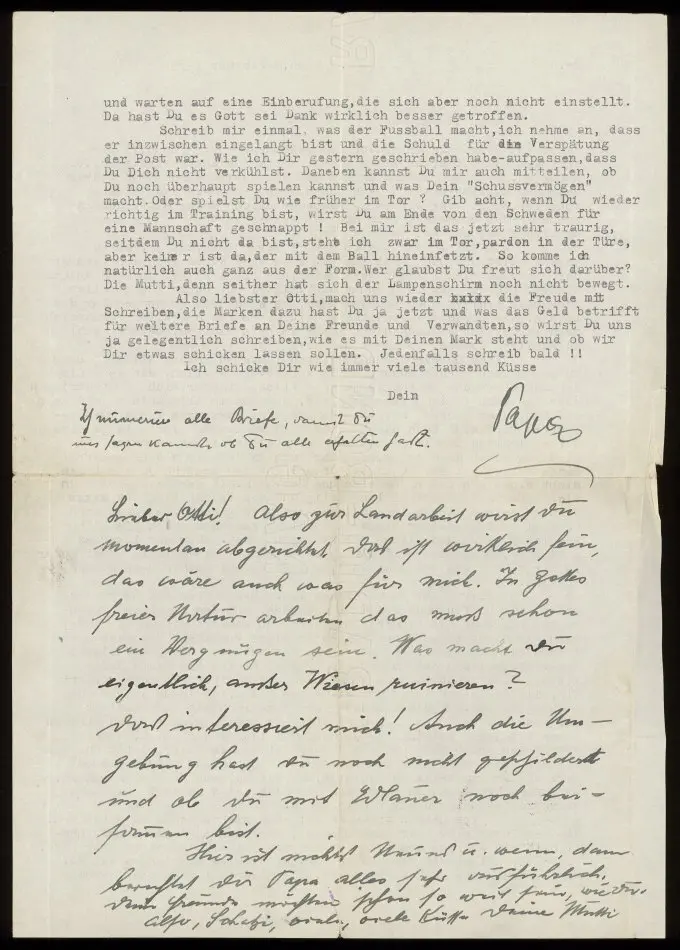 und warten auf eine Einberufung,die sich aber noch nicht einstellt.
Da hast Du es Gott sei Dank wirklich besser getroffen.
Schreib mir einmal, was der Fussball macht,ich nehme an, dass
er inzwischen eingelangt bist und die Schuld für die Verspätung
der Post war. Wie ich Dir gestern geschrieben habe-aufpassen,dass
Du Dich nicht verkühlst. Daneben kannst Du mir auch mitteilen, ob
Du noch überhaupt spielen kannst und was Dein "Schussvermögen"
macht.Oder spielst Du wie früher im Tor ? Gib acht, wenn Du wieder
richtig im Training bist, wirst Du am Ende von den Schweden für
eine Mannschaft geschnappt ! Bei mir ist das jetzt sehr traurig,
seitdem Du nicht da bist,stehe ich zwar im Tor,pardon in der Türe,
aber keiner ist da,der mit dem Ball hineinfetzt. So komme ich
natürlich auch ganz aus der Form.Wer glaubst Du freut sich darüber?
Die Mutti,denn seither hat sich der Lampenschirm noch nicht bewegt.
Also liebster Otti,mach uns wieder xxxxx die Freude mit
Schreiben,die Marken dazu hast Du ja jetzt und was das Geld betrifft
für weitere Briefe an Deine Freunde und Verwandten,so wirst Du uns
ja gelegentlich schreiben,wie es mit Deinen Mark steht und ob wir
Dir etwas schicken lassen sollen. Jedenfalls schreib bald !!
Ich schicke Dir wie immer viele tausend Küsse
Dein
Papa
Ich numeriere alle Briefe, damit Du
uns sagen kannst ob Du alle erhalten hast.
Lieber Otti! Also zur Landarbeit wirst du
momentan abgerichtet. Das ist wirklich fein,
das wäre auch was für mich. In Gottes
freier Natur arbeiten das muß schon
ein Vergnügen sein. Was machst du
eigentlich, außer Wiesen ruinieren?
Das interessiert mich! Auch die Um-
gebung hast du noch nicht geschildert
und ob du mit noch bei-
sammen bist.
Hier ist nichts Neues u. wenn, dann
berichtet dir Papa alles sehr ausführlich.
Deine Freunde möchten schon so weit sein, wie du.
Also, Schatzi, viele, viele Küsse Deine Mutti